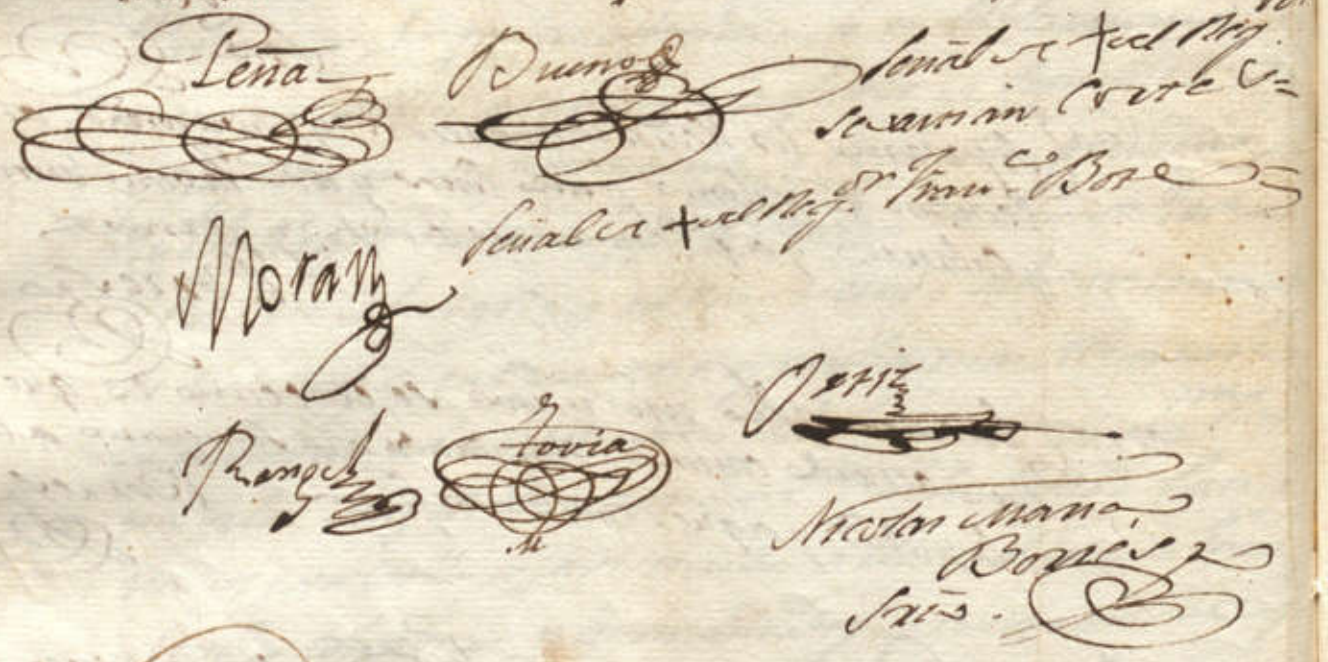 Peña
Bueno
Señal de + del Reg.or
German Cortes =
Señal de + del Reg.or Fran.co Bore =
Moran
Rangel
Tovia
Ortiz
Nicolas Maria
Borres
Srio.